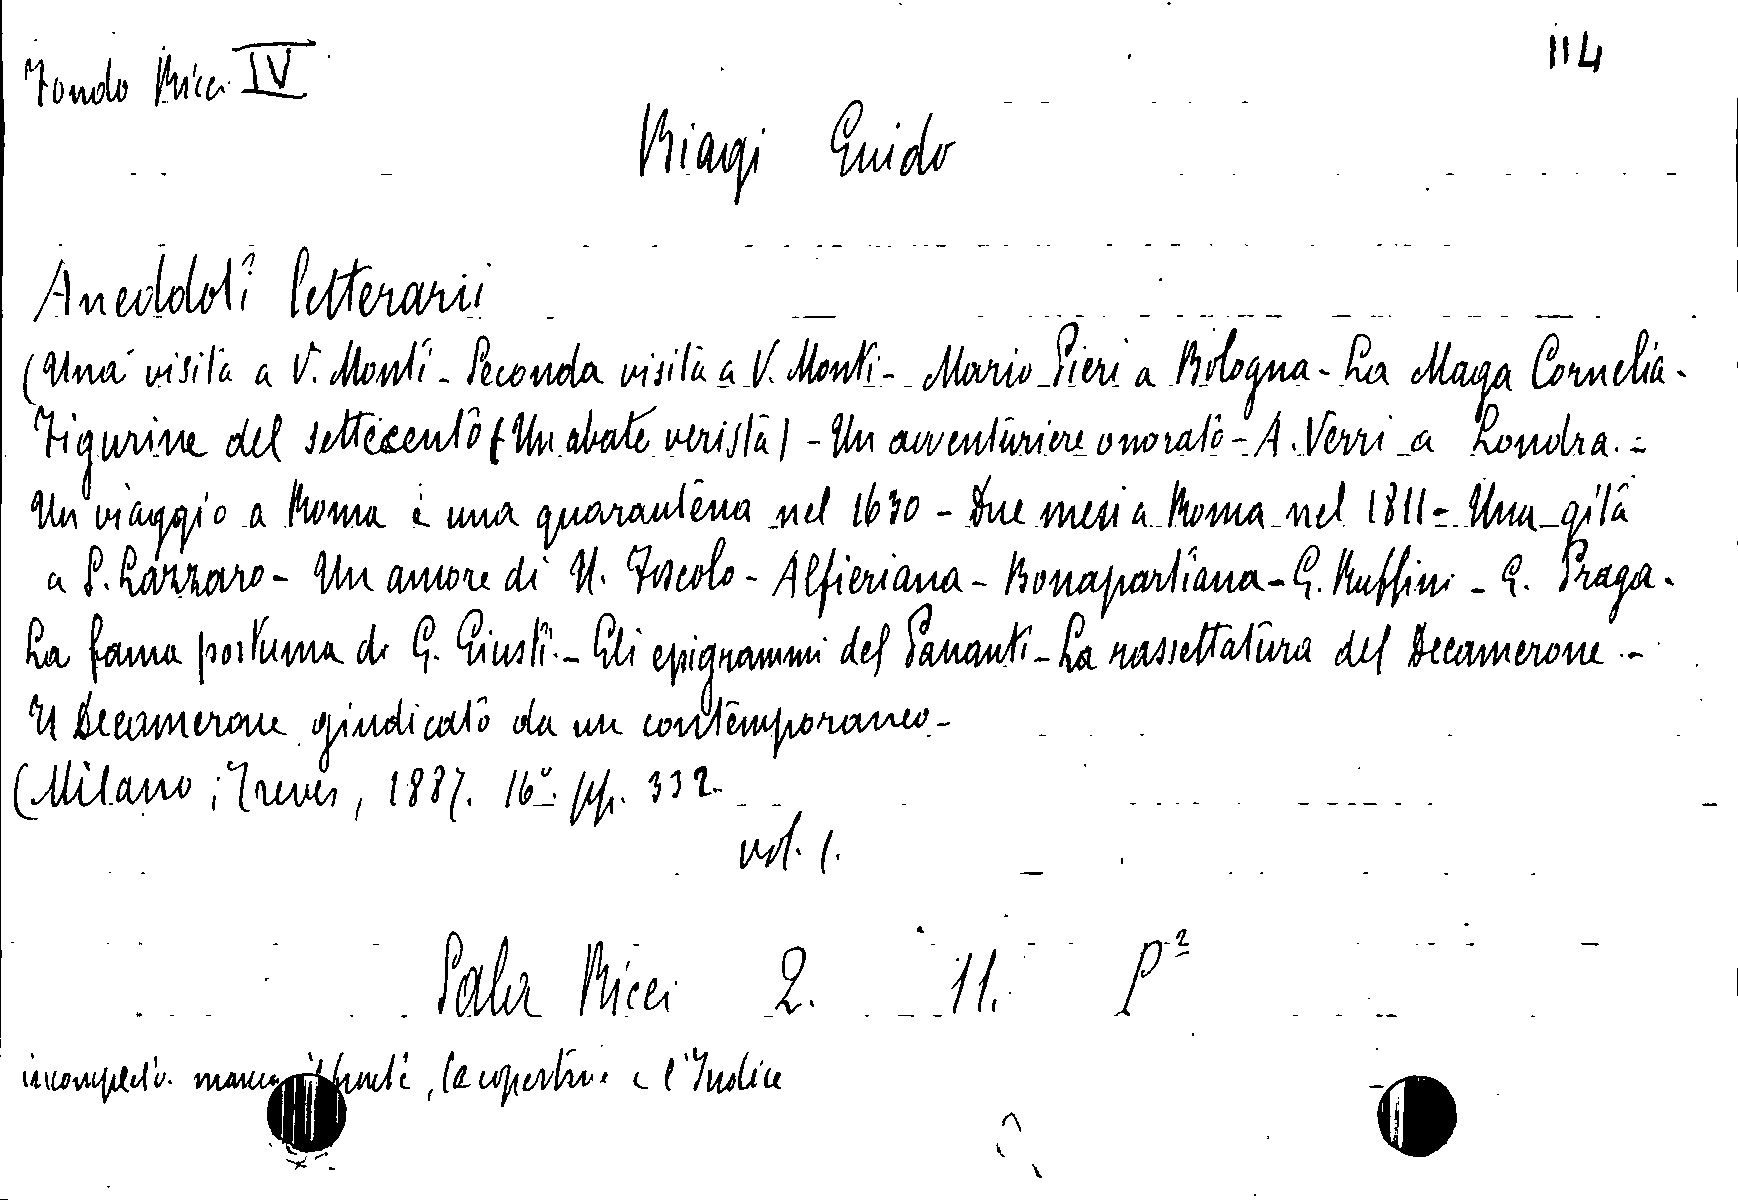 Fondo Ricci IV
114
Biagi Guido
Aneddoti letterarii
(Una visita a V. Monti - Seconda visita a V. Monti - Mario Pieri a Bologna - La Maga Cornelia -
Figurine del settecento (Un abate verista) - Un avventuriere onorato - A. Verri a Londra. -
Un viaggio a Roma e una quarantena nel 1630 - Due mesi a Roma nel 1811 - Una gita
a S. Lazzaro - Un amore di U. Foscolo - Alfieriana - Bonapartiana - G. Ruffini - E. Praga -
La fama postuma di G. Giusti. - Gli epigrammi del Pananti - La rassettatura del Decamerone. -
Il Decamerone giudicato da un contemporaneo -
(Milano, Treves, 1887. 16° pp. 332.
vol. 1.
Sala Ricci 2. 11. P²
incompleto. manca, la copertina e l'Indice